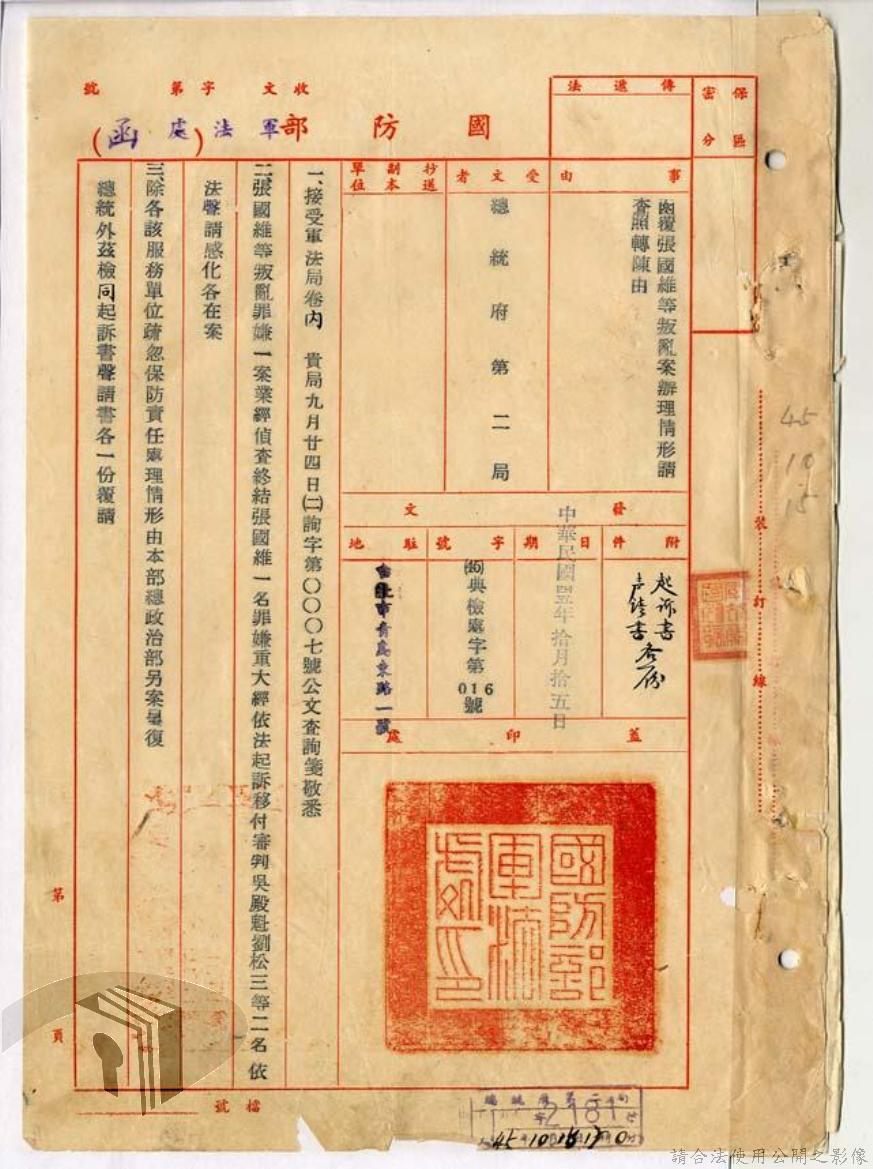 收文字第號
國防部軍法處(函)
保密區分
傳遞法
事由
函覆張國維等叛亂案辦理情形請
查照轉陳由
受文者
總統府第二局
抄送副本單位
發文
附件
起訴書
声請書各一份
日期
中華民國四五年拾月拾五日
字號
(45)典檢處字第016號
駐地
台北市青島東路一號
蓋印處
國防部軍法處印
一、接受軍法局卷內 貴局九月廿四日(二)詢字第〇〇〇七號公文查詢箋敬悉
二、張國維等叛亂罪嫌一案業經偵查終結張國維一名罪嫌重大經依法起訴移付審判吳殿魁劉松三等二名依
法聲請感化各在案
三、除各該服務單位疏忽保防責任處理情形由本部總政治部另案呈復
總統外茲檢同起訴書聲請書各一份覆請
第頁
檔號
裝訂線
45
10
15
總統府第二局
請合法使用公開之影像